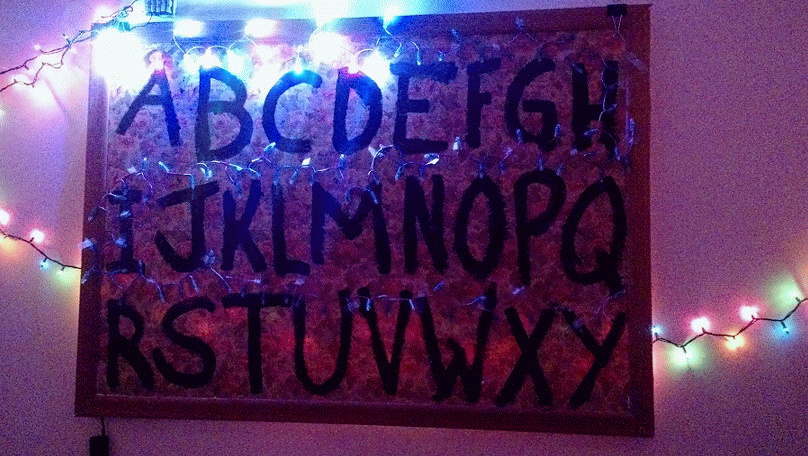 ABCDEFGH
IJKLMNOPQ
RSTUVWXY